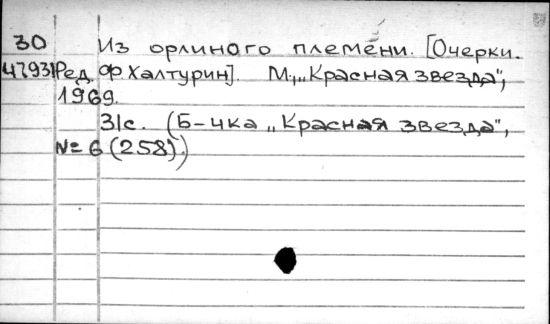 30 Из орлиного племени. [Очерки.
47931 Ред. Ф Халтурин]. М., „Красная звезда",
1969.
31с. (Б-чка „Красная звезда",
№ 6 (258).)